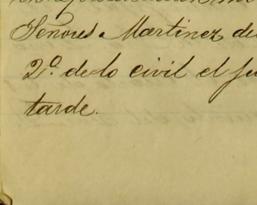 Señores Martinez de
2º. de lo civil el ju
tarde.